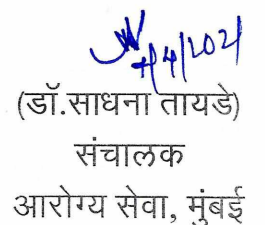 4/2021
(डॉ.साधना तायडे)
संचालक
आरोग्य सेवा, मुंबई